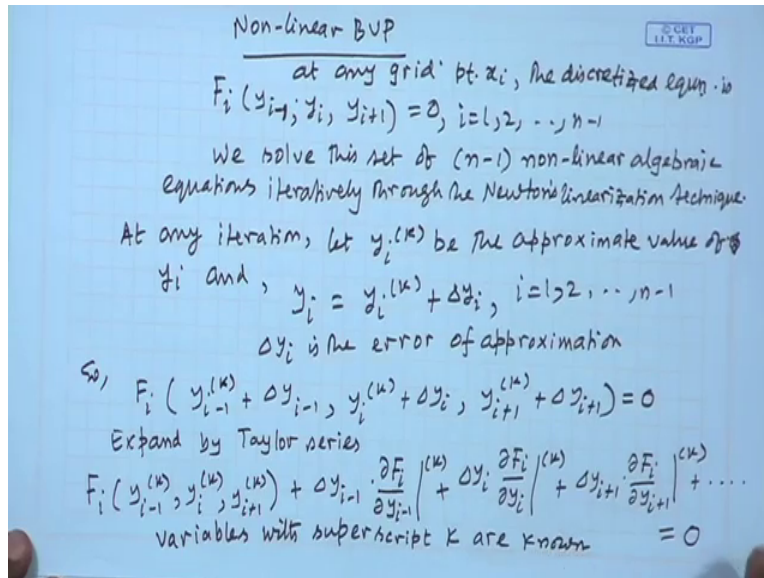 Non-linear BVP
© CET
I.I.T. KGP
at any grid pt. x_i, the discretized equn. is
F_i (y_{i-1}, y_i, y_{i+1}) = 0, i=1,2, ..., n-1
We solve this set of (n-1) non-linear algebraic
equations iteratively through the Newton's linearization technique.
At any iteration, let y_i^{(k)} be the approximate value of
y_i and, y_i = y_i^{(k)} + Δy_i, i=1,2, ..., n-1
Δy_i is the error of approximation
So, F_i ( y_{i-1}^{(k)} + Δy_{i-1}, y_i^{(k)} + Δy_i, y_{i+1}^{(k)} + Δy_{i+1} ) = 0
Expand by Taylor series
F_i (y_{i-1}^{(k)}, y_i^{(k)}, y_{i+1}^{(k)}) + Δy_{i-1} · ∂F_i/∂y_{i-1} |^{(k)} + Δy_i ∂F_i/∂y_i |^{(k)} + Δy_{i+1} · ∂F_i/∂y_{i+1} |^{(k)} + ....
variables with superscript k are known = 0